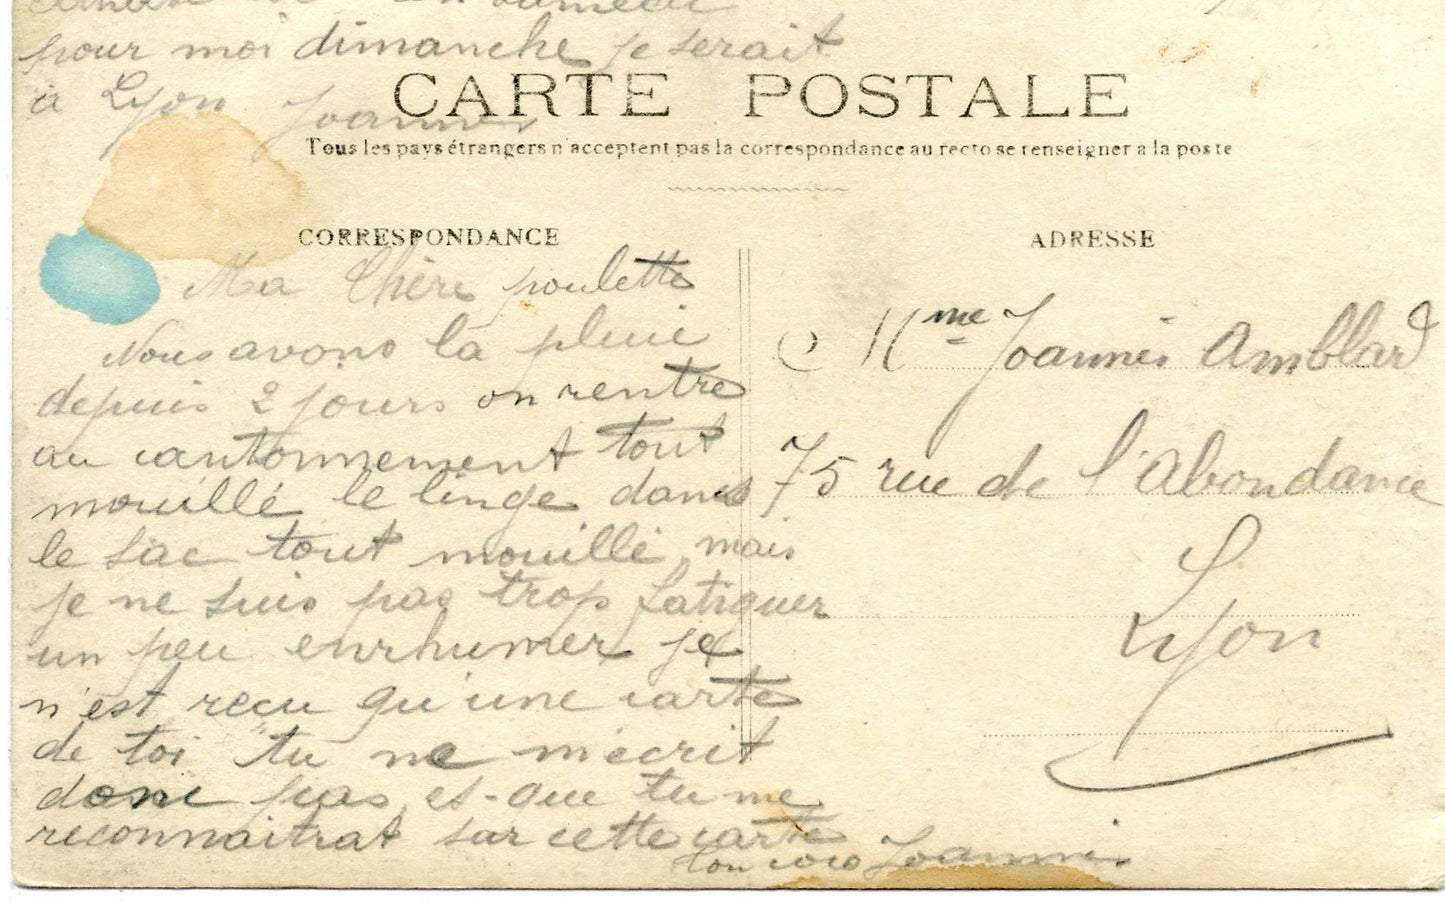 pour moi dimanche je serait
à Lyon Joannès
CARTE POSTALE
Tous les pays étrangers n'acceptent pas la correspondance au recto se renseigner a la poste
CORRESPONDANCE
Ma Chère poulette
Nous avons la pluie
depuis 2 jours on rentre
au cantonnement tout
mouillé le linge dans
le sac tout mouillé, mais
je ne suis pas trop fatiguer
un peu enrhumer je
n'est reçu qu'une carte
de toi tu ne m'écrit
donc pas es-que tu me
reconnaitrat sur cette carte
ton coco Joannès
ADRESSE
Mme Joannès Amblard
75 rue de l'Abondance
Lyon